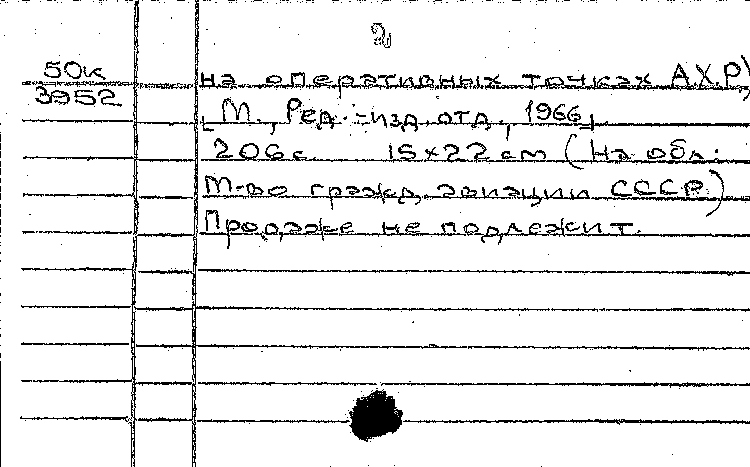 2
50к
3952
на оперативных точках АХР)
[М., Ред.-изд. отд., 1966].
206 с. 15×22 см (На обл.:
М-во гражд. авиации СССР)
Продаже не подлежит.